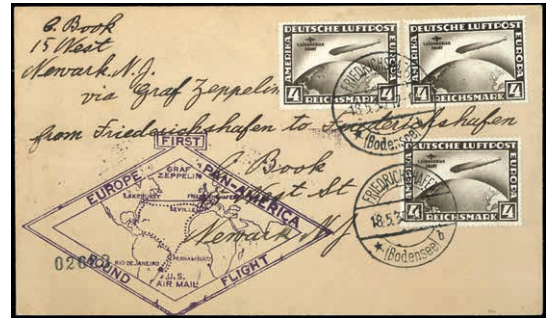 C. Book
15 West
Newark. N.J.
via Graf Zeppelin
from Friederichshafen to Friederichshafen
C. Book
West St
Newark N.J.
DEUTSCHE LUFTPOST
AMERIKA
EUROPA
1.SÜDAMERIKA
FAHRT
4
REICHSMARK
4
DEUTSCHE LUFTPOST
AMERIKA
EUROPA
1.SÜDAMERIKA
FAHRT
4
REICHSMARK
4
DEUTSCHE LUFTPOST
AMERIKA
EUROPA
1.SÜDAMERIKA
FAHRT
4
REICHSMARK
4
FRIEDRICHSHAFEN
18.5.3
(Bodensee)
FRIEDRICHSHAFEN
18.5.3
(Bodensee) b
FIRST
EUROPE
PAN-AMERICA
GRAF
ZEPPELIN
LAKEHURST
FRIEDRICHSHAFEN
SEVILLA
PERNAMBUCO
RIO DE JANEIRO
U.S.
AIR MAIL
ROUND
FLIGHT